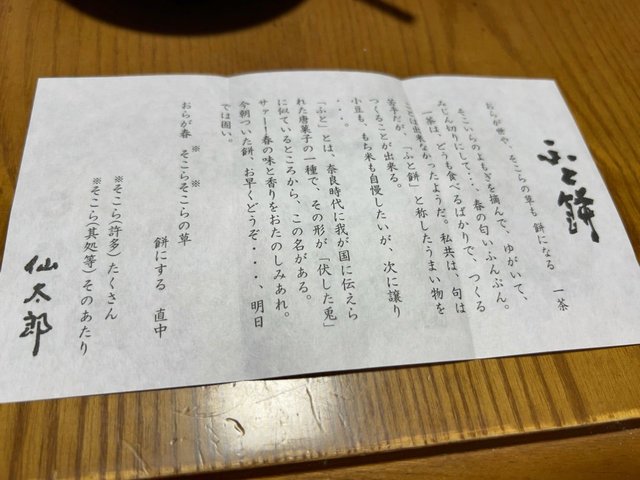 ふと餅
おらが世や、そこらの草も 餅になる 一茶
そこいらのよもぎを摘んで、ゆがいて、
みじん切りにして・・・春の匂いふんぷん。
一茶は、どうも食べるばかりで、つくる
ことは出来なかったようだ。私共は、句は
苦手だが、「ふと餅」と称したうまい物を
つくることが出来る。
小豆も、もち米も自慢したいが、次に譲り
・・・。
「ふと」とは、奈良時代に我が国に伝えら
れた唐菓子の一種で、その形が「伏した兎」
に似ているところから、この名がある。
サァーー春の味と香りをおたのしみあれ。
今朝ついた餅、お早くどうぞ・・・、明日
では固い。
おらが春 そこら※そこら※の草
餅にする 直中
※そこら(許多)たくさん
※そこら(其処等)そのあたり
仙太郎